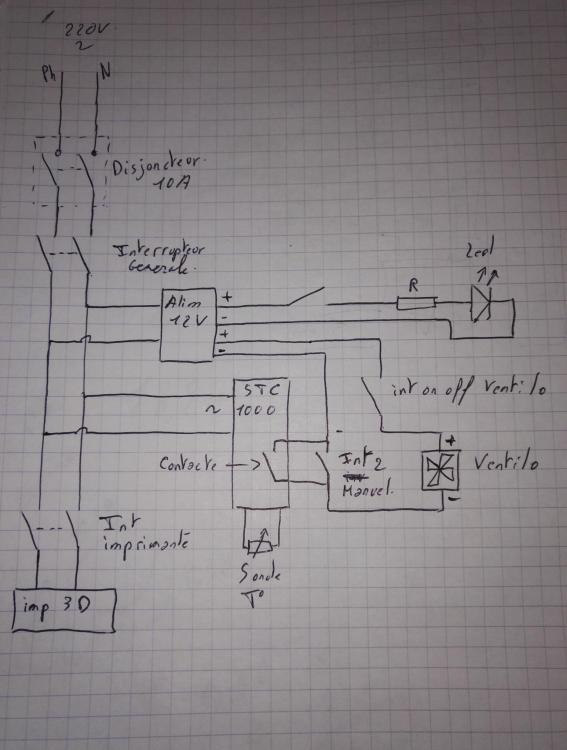 220V
~
Ph
N
Disjoncteur
10A
Interrupteur
Generale.
Led
Alim
12V
+
-
+
-
R
STC
1000
~
int on off Ventilo
Contacte
-
Int 2
Manuel.
+
Ventilo
-
Int
imprimante
Sonde
T°
imp 3D